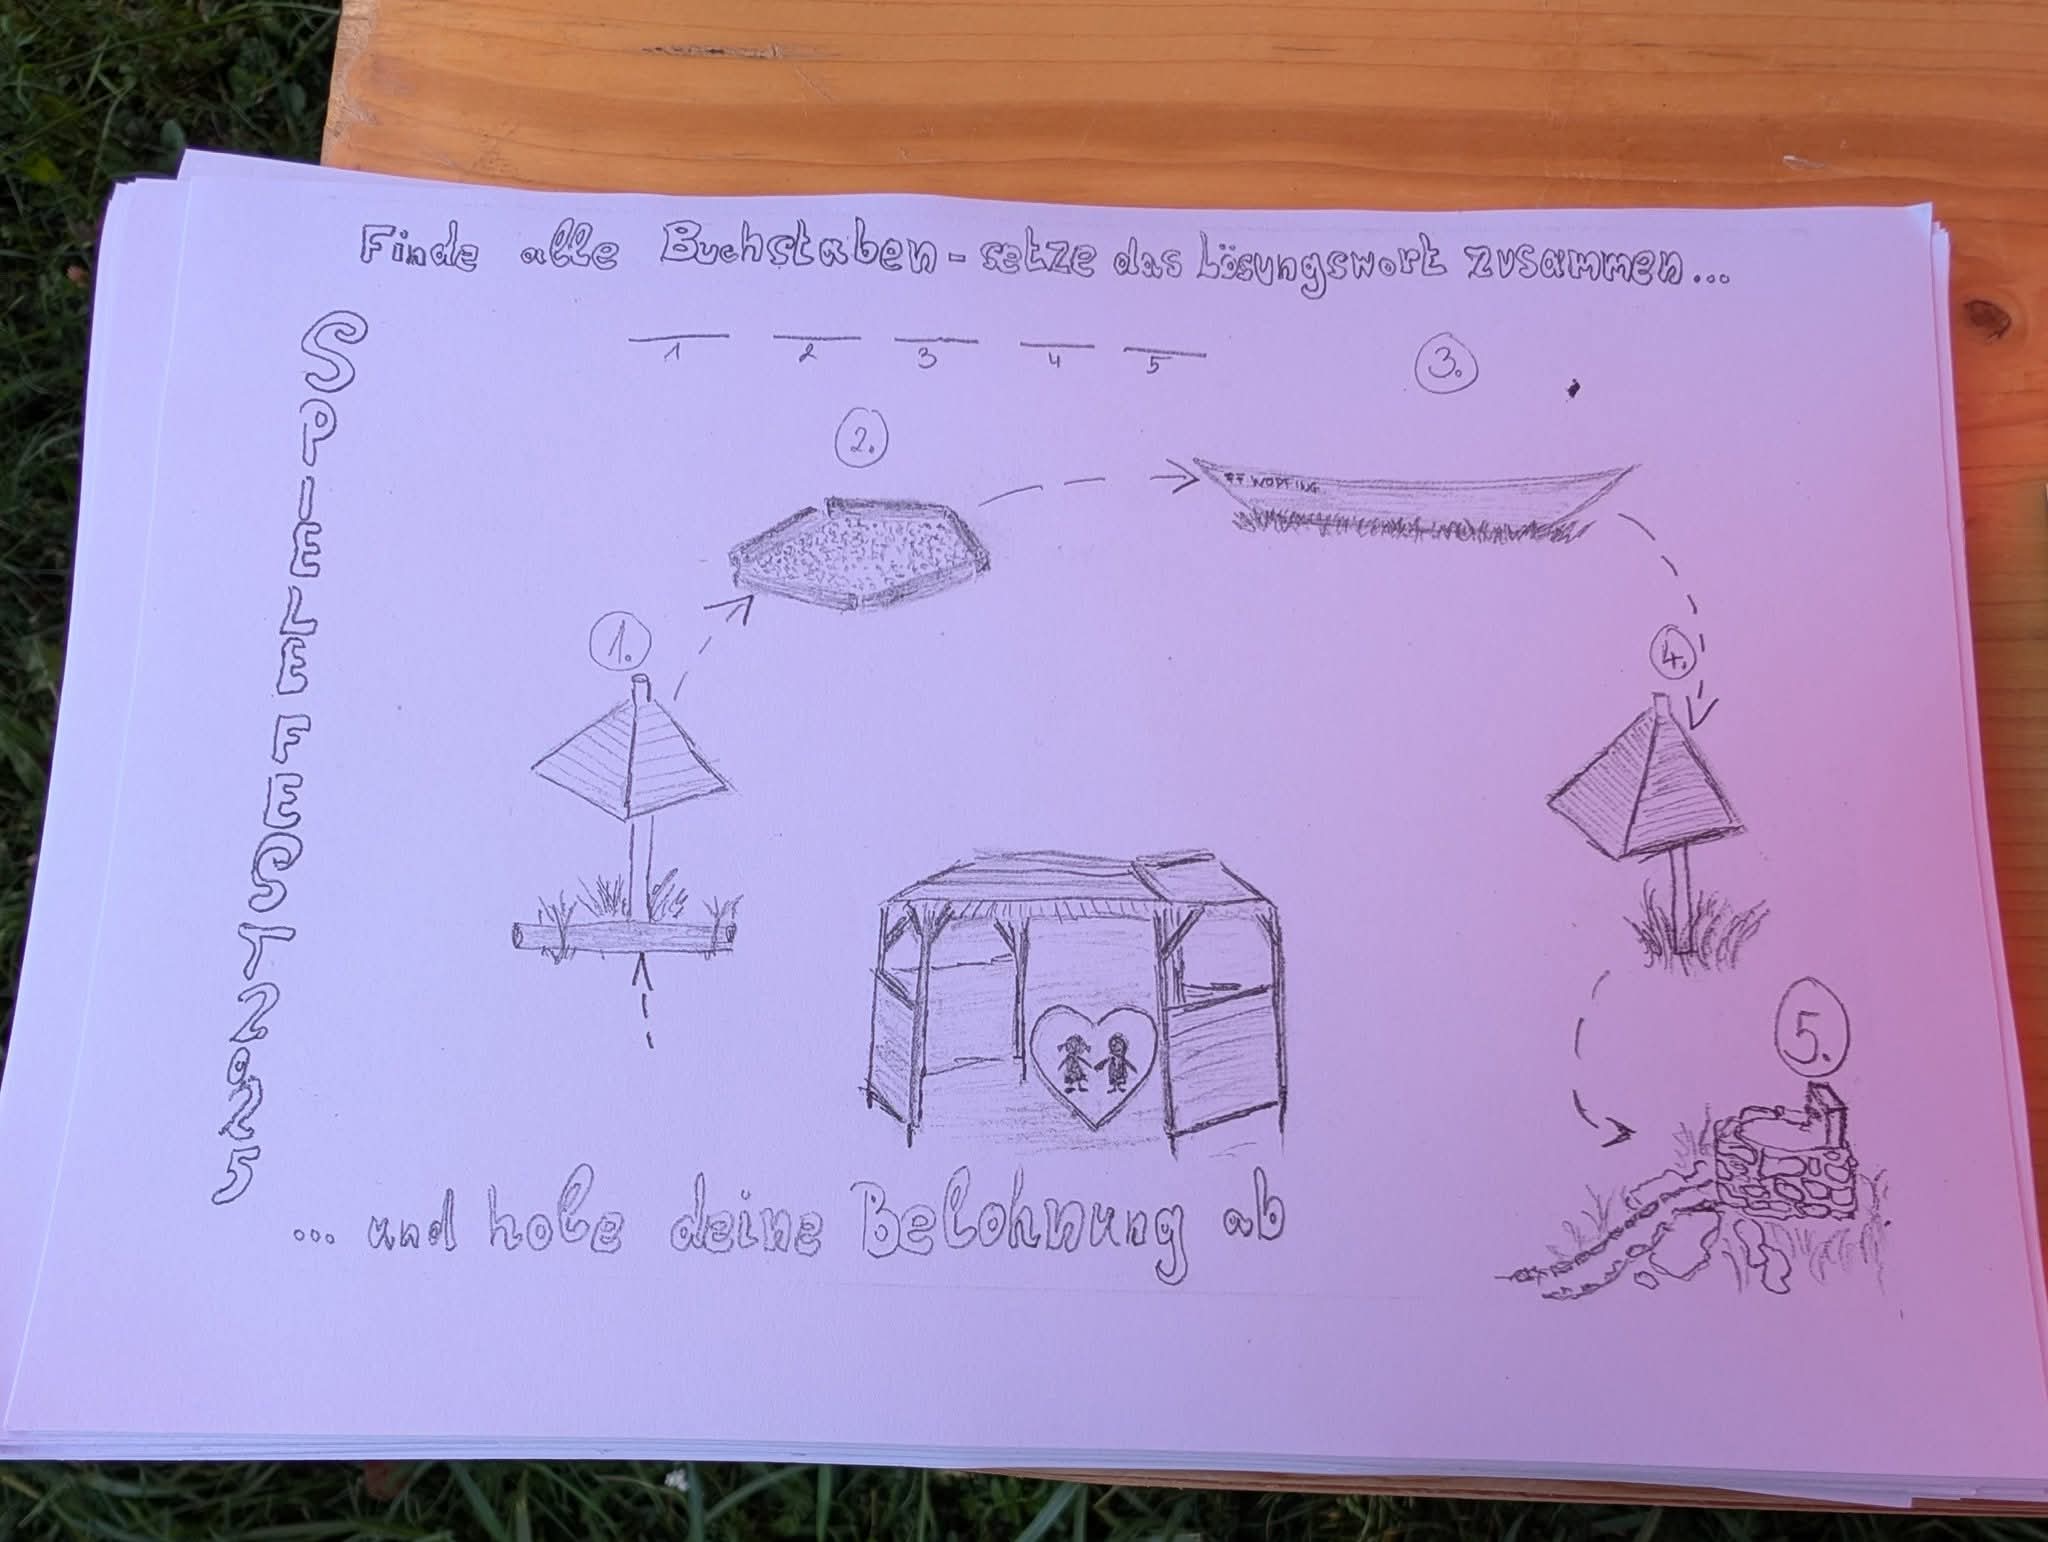 Finde alle Buchstaben - setze das Lösungswort zusammen...
1 2 3 4 5
SPIELEFEST 2025
3.
2.
FF WOPFING
1.
4.
5.
... und hole deine Belohnung ab